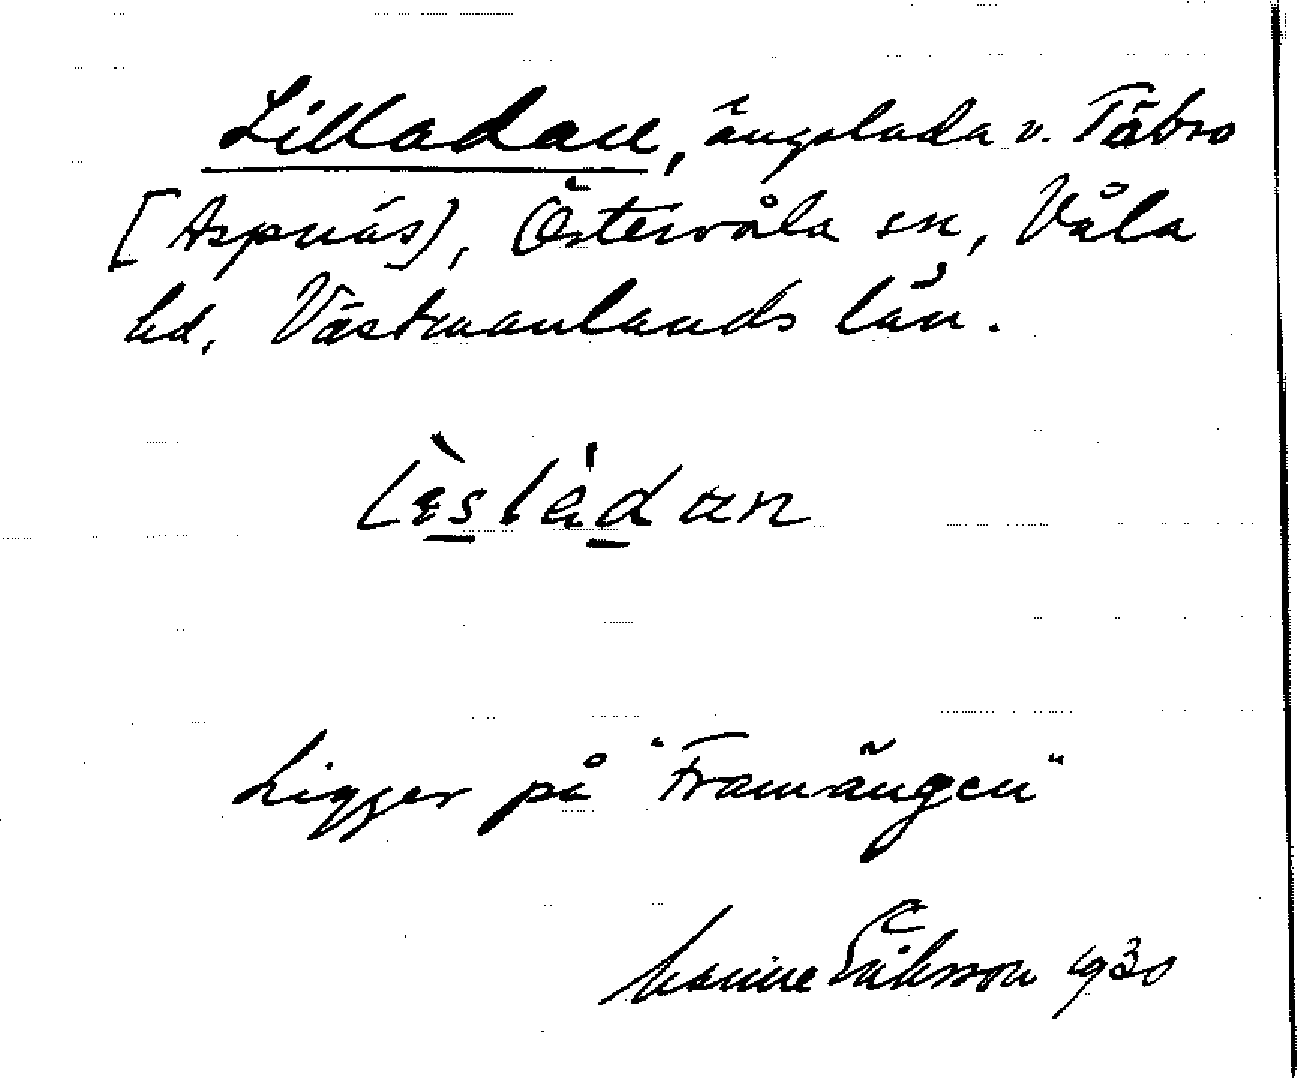 Lilladan, ängslada v. Täbro
[Aspnäs], Östervåla sn, Våla
hd. Västmanlands län.
Ligger på "Framängen"
Manne Eriksson 1930